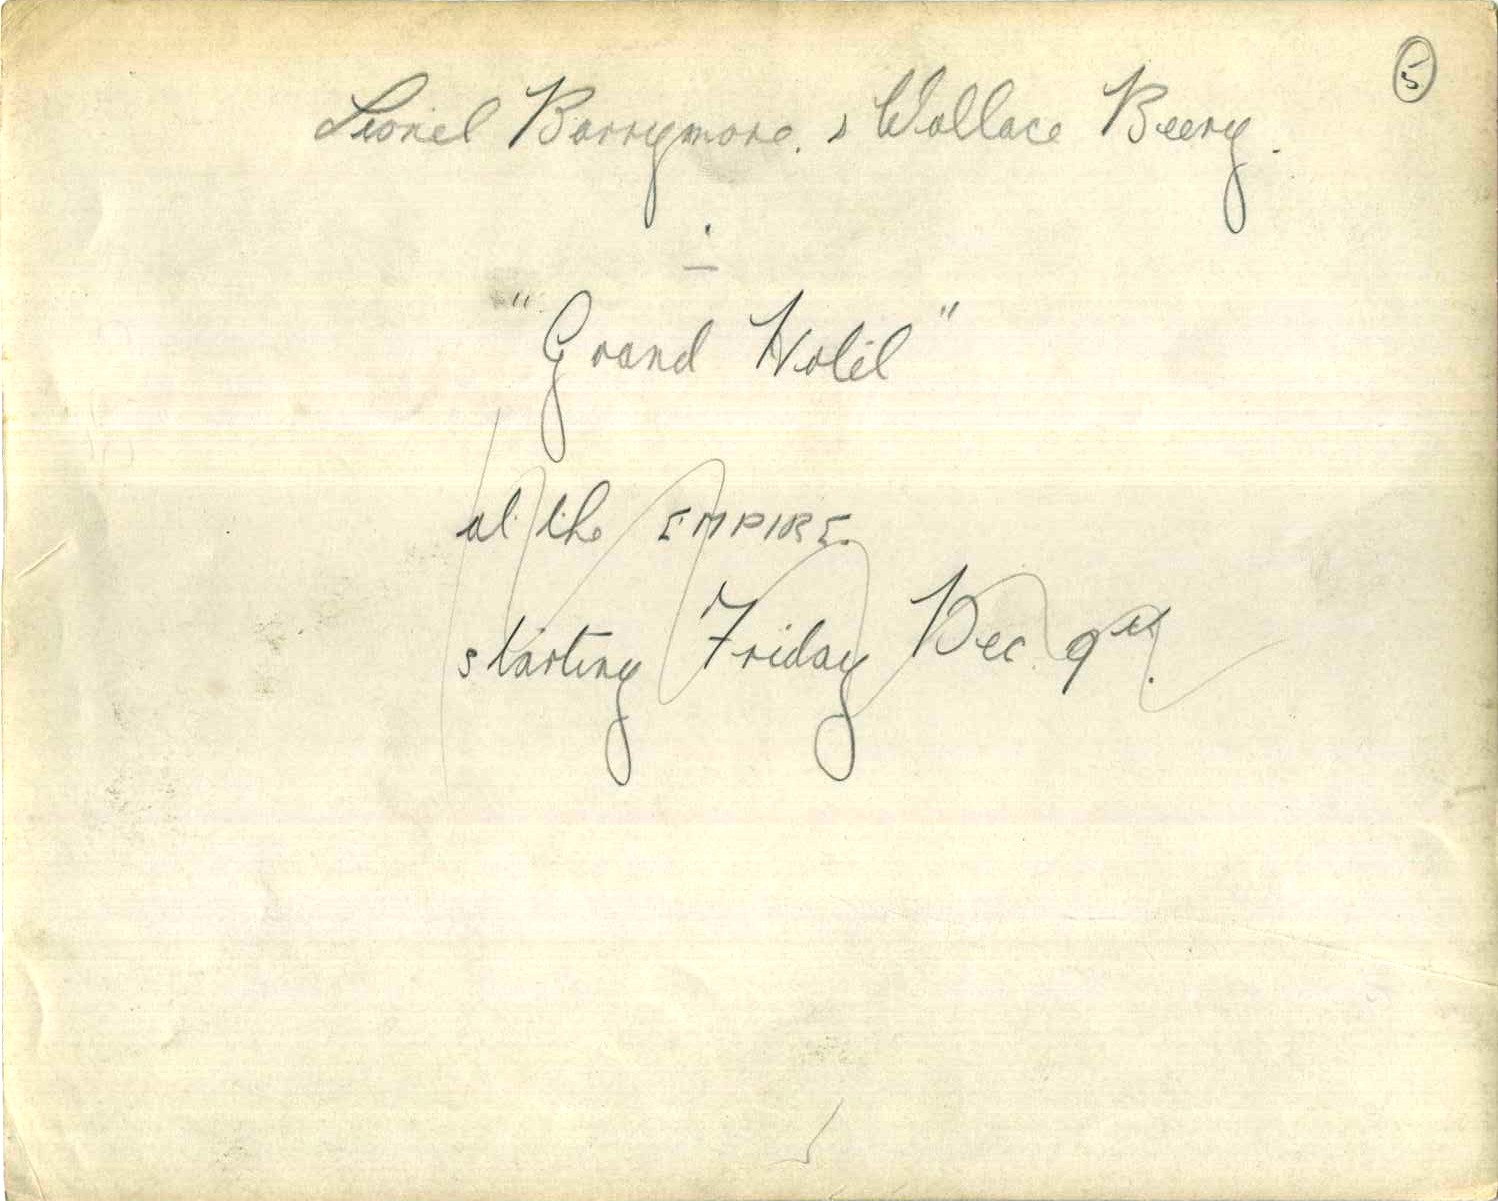 5
Lionel Barrymore. & Wallace Beery.
in
"Grand Hotel"
at the EMPIRE.
starting Friday Dec 9th.